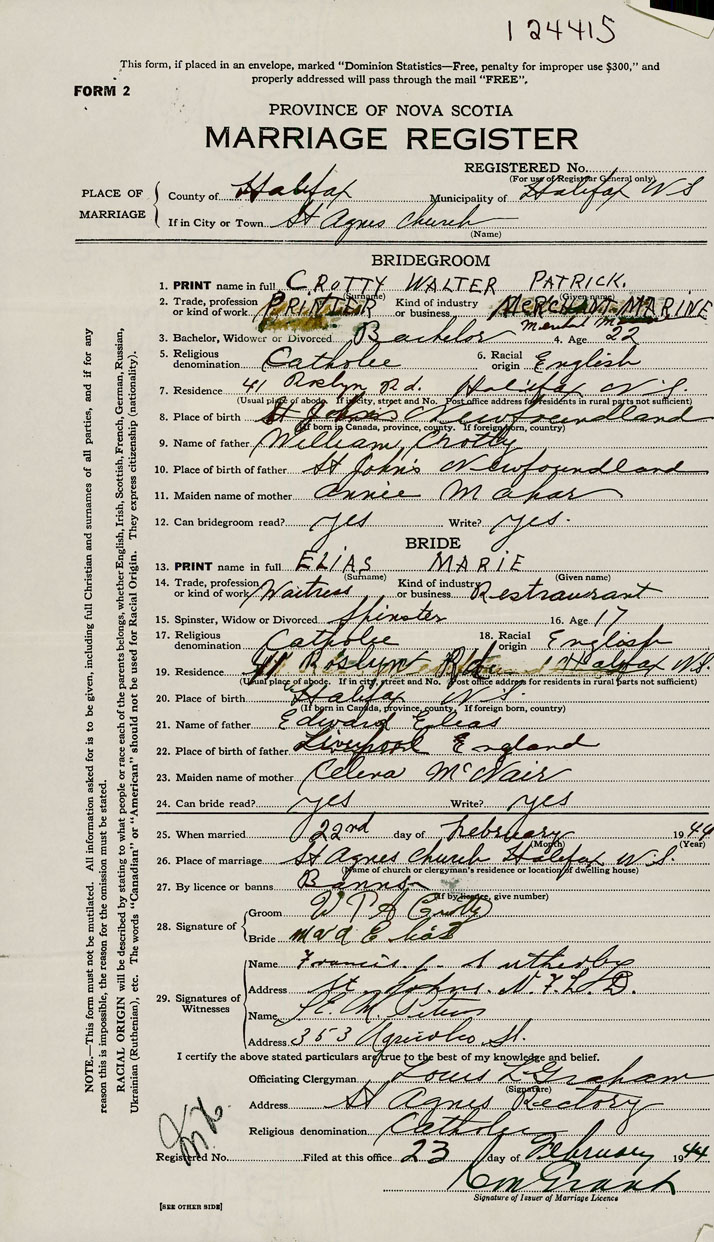 124415
This form, if placed in an envelope, marked "Dominion Statistics—Free, penalty for improper use $300," and
properly addressed will pass through the mail "FREE".
FORM 2
PROVINCE OF NOVA SCOTIA
MARRIAGE REGISTER
REGISTERED No.
(For use of Registrar General only)
PLACE OF MARRIAGE
County of Halifax Municipality of Halifax N S
If in City or Town St Agnes Church
(Name)
BRIDEGROOM
1. PRINT name in full CROTTY WALTER PATRICK.
(Surname) (Given name)
2. Trade, profession or kind of work PRINTER Kind of industry or business MERCHANT MARINE
3. Bachelor, Widower or Divorced Bachelor 4. Age 22
5. Religious denomination Catholic 6. Racial origin English
7. Residence 41 Roslyn Rd. Halifax N.S.
(Usual place of abode. If in city, street and No. Post office address for residents in rural parts not sufficient)
8. Place of birth St John's Newfoundland
(If born in Canada, province, county. If foreign born, country)
9. Name of father William Crotty
10. Place of birth of father St John's Newfoundland
11. Maiden name of mother Annie Mahar
12. Can bridegroom read? yes Write? yes.
BRIDE
13. PRINT name in full ELIAS MARIE
(Surname) (Given name)
14. Trade, profession or kind of work Waitress Kind of industry or business Restraurant
15. Spinster, Widow or Divorced Spinster 16. Age 17
17. Religious denomination Catholic 18. Racial origin English
19. Residence 41 Roslyn Rd. Halifax N.S.
(Usual place of abode. If in city, street and No. Post office address for residents in rural parts not sufficient)
20. Place of birth Halifax N.S.
(If born in Canada, province, county. If foreign born, country)
21. Name of father Edward Elias
22. Place of birth of father Liverpool England
23. Maiden name of mother Celena McNair
24. Can bride read? yes Write? yes
25. When married 22nd day of February 1944
(Month) (Year)
26. Place of marriage St Agnes Church Halifax N.S.
(Name of church or clergyman's residence or location of dwelling house)
27. By licence or banns Banns
(If by licence, give number)
28. Signature of
Groom W P Crotty
Bride Elias
29. Signatures of Witnesses
Name Francis J.
Address St. Johns. N.F.L.D.
Name
Address 353 Agricola St.
I certify the above stated particulars are true to the best of my knowledge and belief.
Officiating Clergyman Louis L Graham
(Signature)
Address St Agnes Rectory
Religious denomination Catholic
Registered No. Filed at this office 23 day of February 1944
Grant
Signature of Issuer of Marriage Licence
[SEE OTHER SIDE]
NOTE.—This form must not be mutilated. All information asked for is to be given, including full Christian and surnames of all parties, and if for any
reason this is impossible, the reason for the omission must be stated.
RACIAL ORIGIN will be described by stating to what people or race each of the parents belongs, whether English, Irish, Scottish, French, German, Russian,
Ukrainian (Ruthenian), etc. The words "Canadian" or "American" should not be used for Racial Origin. They express citizenship (nationality).